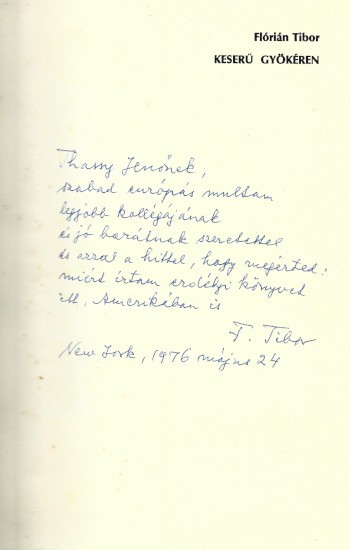 Flórián Tibor
KESERŰ GYÖKÉREN
Thassy Jenőnek,
szabad európás multam
legjobb kollégájának
és jó barátnak szeretettel
és azzal a hittel, hogy megérted:
miért írtam erdélyi könyvet
itt, Amerikában is
F. Tibor
New York, 1976 május 24